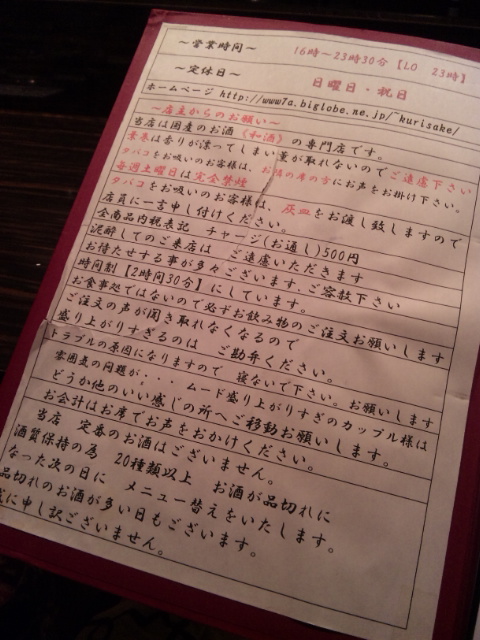 ～営業時間～　16時～23時30分【LO　23時】
～定休日～　日曜日・祝日
ホームページ http://www7a.biglobe.ne.jp/~kurisake/
～店主からのお願い～
当店は国産のお酒《和酒》の専門店です。
葉巻は香りが漂ってしまい薫が取れないのでご遠慮下さい
タバコをお吸いのお客様は、お隣の席の方にお声をお掛け下さい。
毎週土曜日は完全禁煙
タバコをお吸いのお客様は、灰皿をお渡し致しますので
店員に一言申し付けください。
全商品内税表記　チャージ(お通し)500円
泥酔してのご来店は　ご遠慮いただきます
お待たせする事が多々ございます、ご容赦下さい
時間割【2時間30分】にしています。
お食事処ではないので必ずお飲み物のご注文お願いします
ご注文の声が聞き取れなくなるので
盛り上がりすぎるのは　ご勘弁ください。
トラブルの原因になりますので　寝ないで下さい。お願いします
雰囲気の問題が・・・　ムード盛り上がりすぎのカップル様は
どうか他のいい感じの所へご移動お願いします。
お会計はお席でお声をおかけください。
当店　定番のお酒はございません。
酒質保持の為　20種類以上　お酒が品切れに
なった次の日に　メニュー替えをいたします。
品切れのお酒が多い日もございます。
に申し訳ございません。